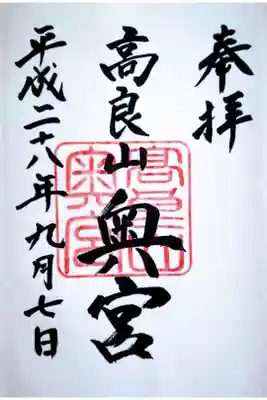 奉拝
高良山奥宮
平成二十八年九月七日